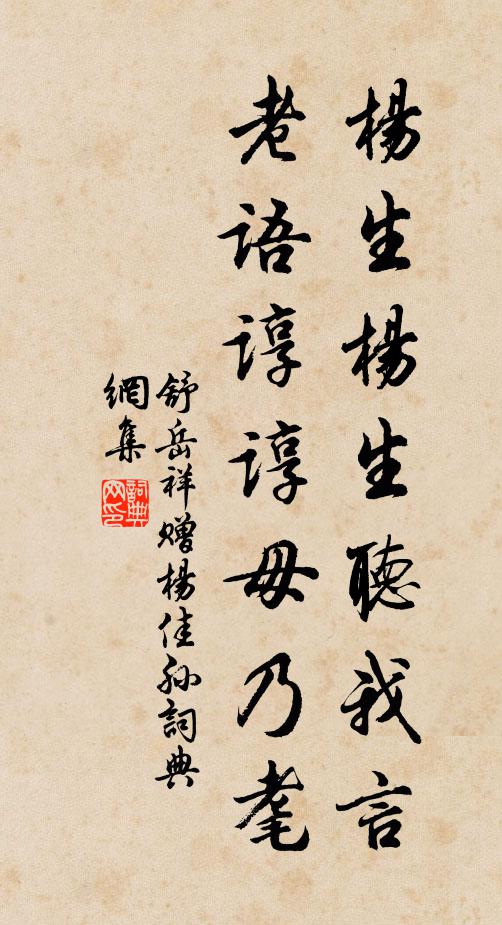 楊生楊生聽我言
老語諄諄毋乃耄
舒岳祥贈楊佳孙詞典
網集
詞典網印